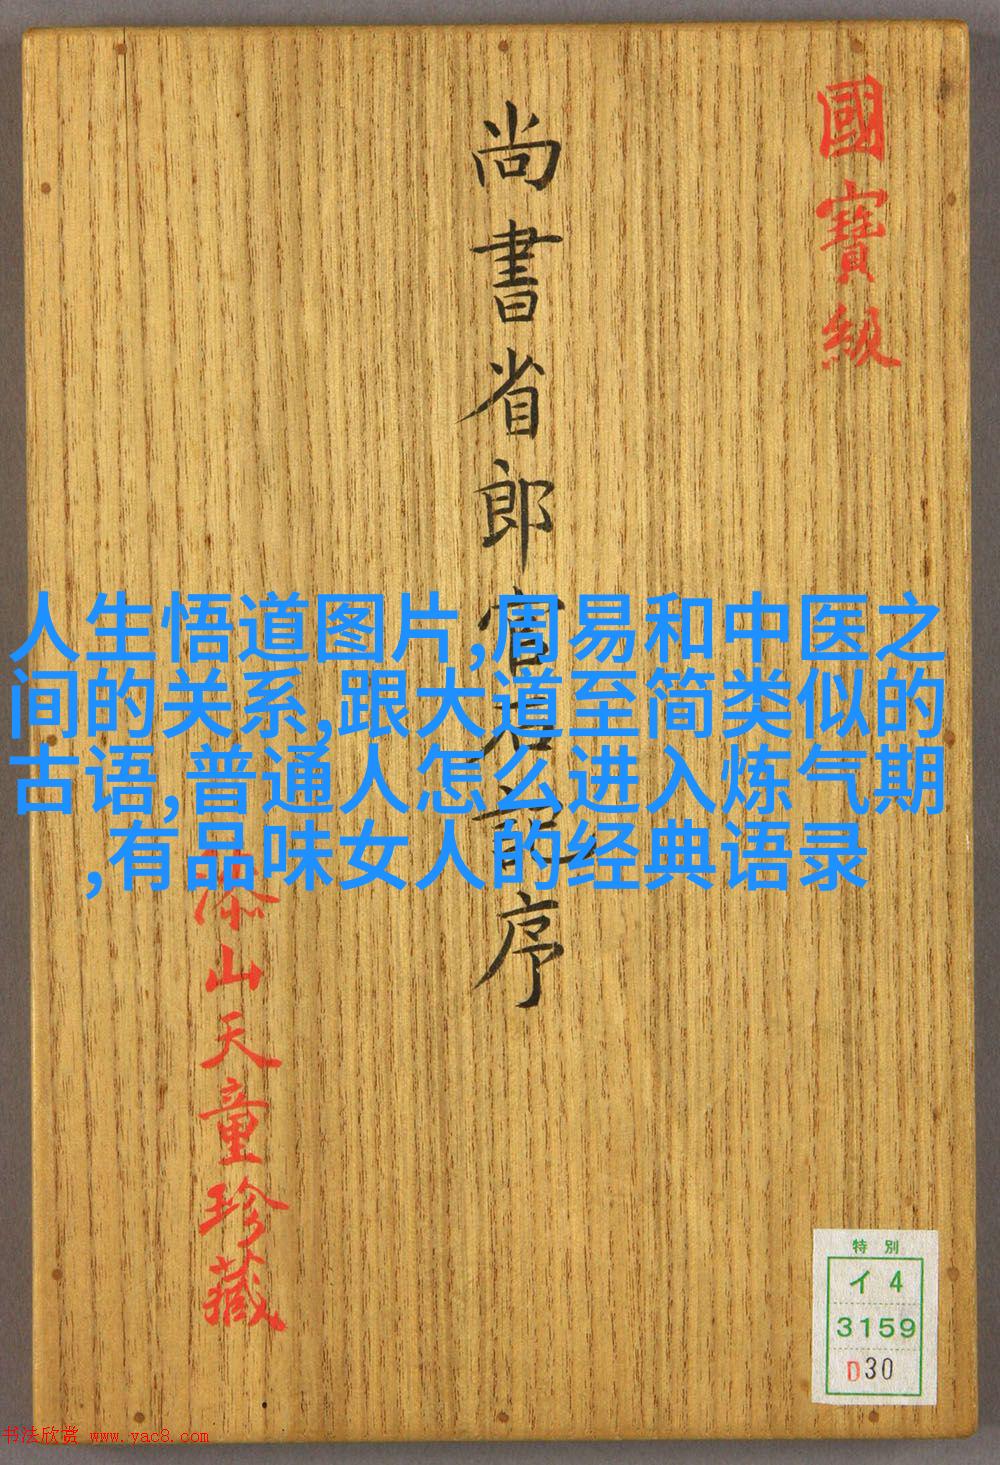 國寶級
尚書省郎官石記序
泰山天童珍藏
人生悟道图片,周易和中医之
间的关系,跟大道至简类似的
古语,普通人怎么进入炼气期
,有品味女人的经典语录
特別
イ4
3159
D30
书法欣赏 www.yac8.com